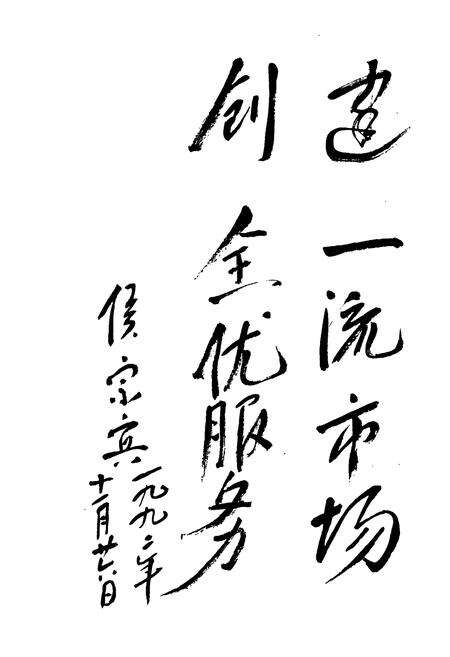 建一流市场
创全优服务
侯宗宾一九九二年
十一月廿六日